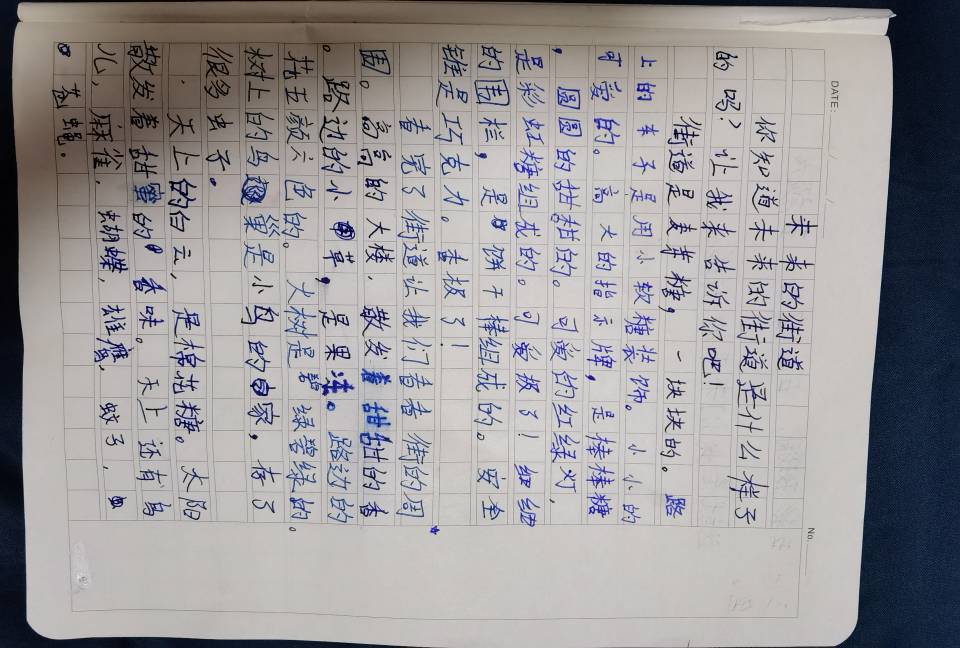 DATE:
No.
未来的街道
你知道未来的街道是什么样子
的吗？让我来告诉你吧！
街道是麦芽糖，一块块的。路
上的车子是用小软糖装饰。小小的
可爱的。高大的指示牌，是棒棒糖
，圆圆的甜甜的。可爱的红绿灯，
是彩虹糖组成的。可爱极了！细细
的围栏，是饼干棒组成的。安全
锥是巧克力。去极了！
看完了街道让我们看看街的周
围。高高的大楼，散发着甜甜的香
。路边的小草，是果冻。路边的
花五颜六色的。大树是碧绿碧绿的。
树上的鸟巢是小鸟的家，存了
很多虫子。
天上的白云，是棉花糖。太阳
散发着甜蜜的香味。天上还有鸟
儿，麻雀，蝴蝶，雄鹰，蚊子，
苍蝇。